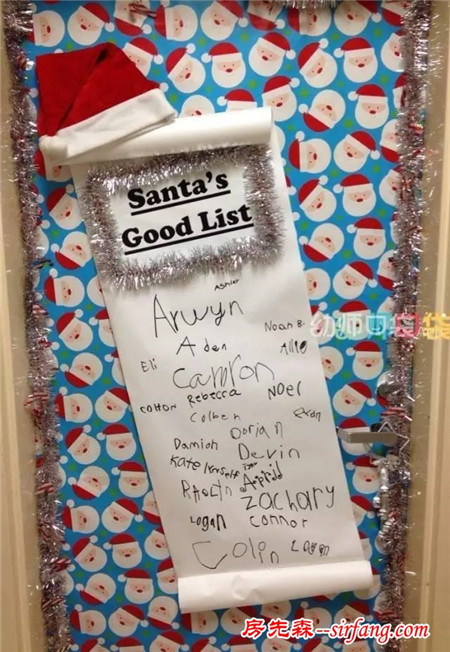 Santa's
Good List
Ashler
Arwyn
Noah B.
Aden
Allie
Eli
Camron
Rebecca
Noel
COHON
Colben
Evan
Dorian
Damion
Devin
Kate
Astrid
Zachary
Logan
Connor
Colin
Logan
幼师口袋
房先森--sirfang.com